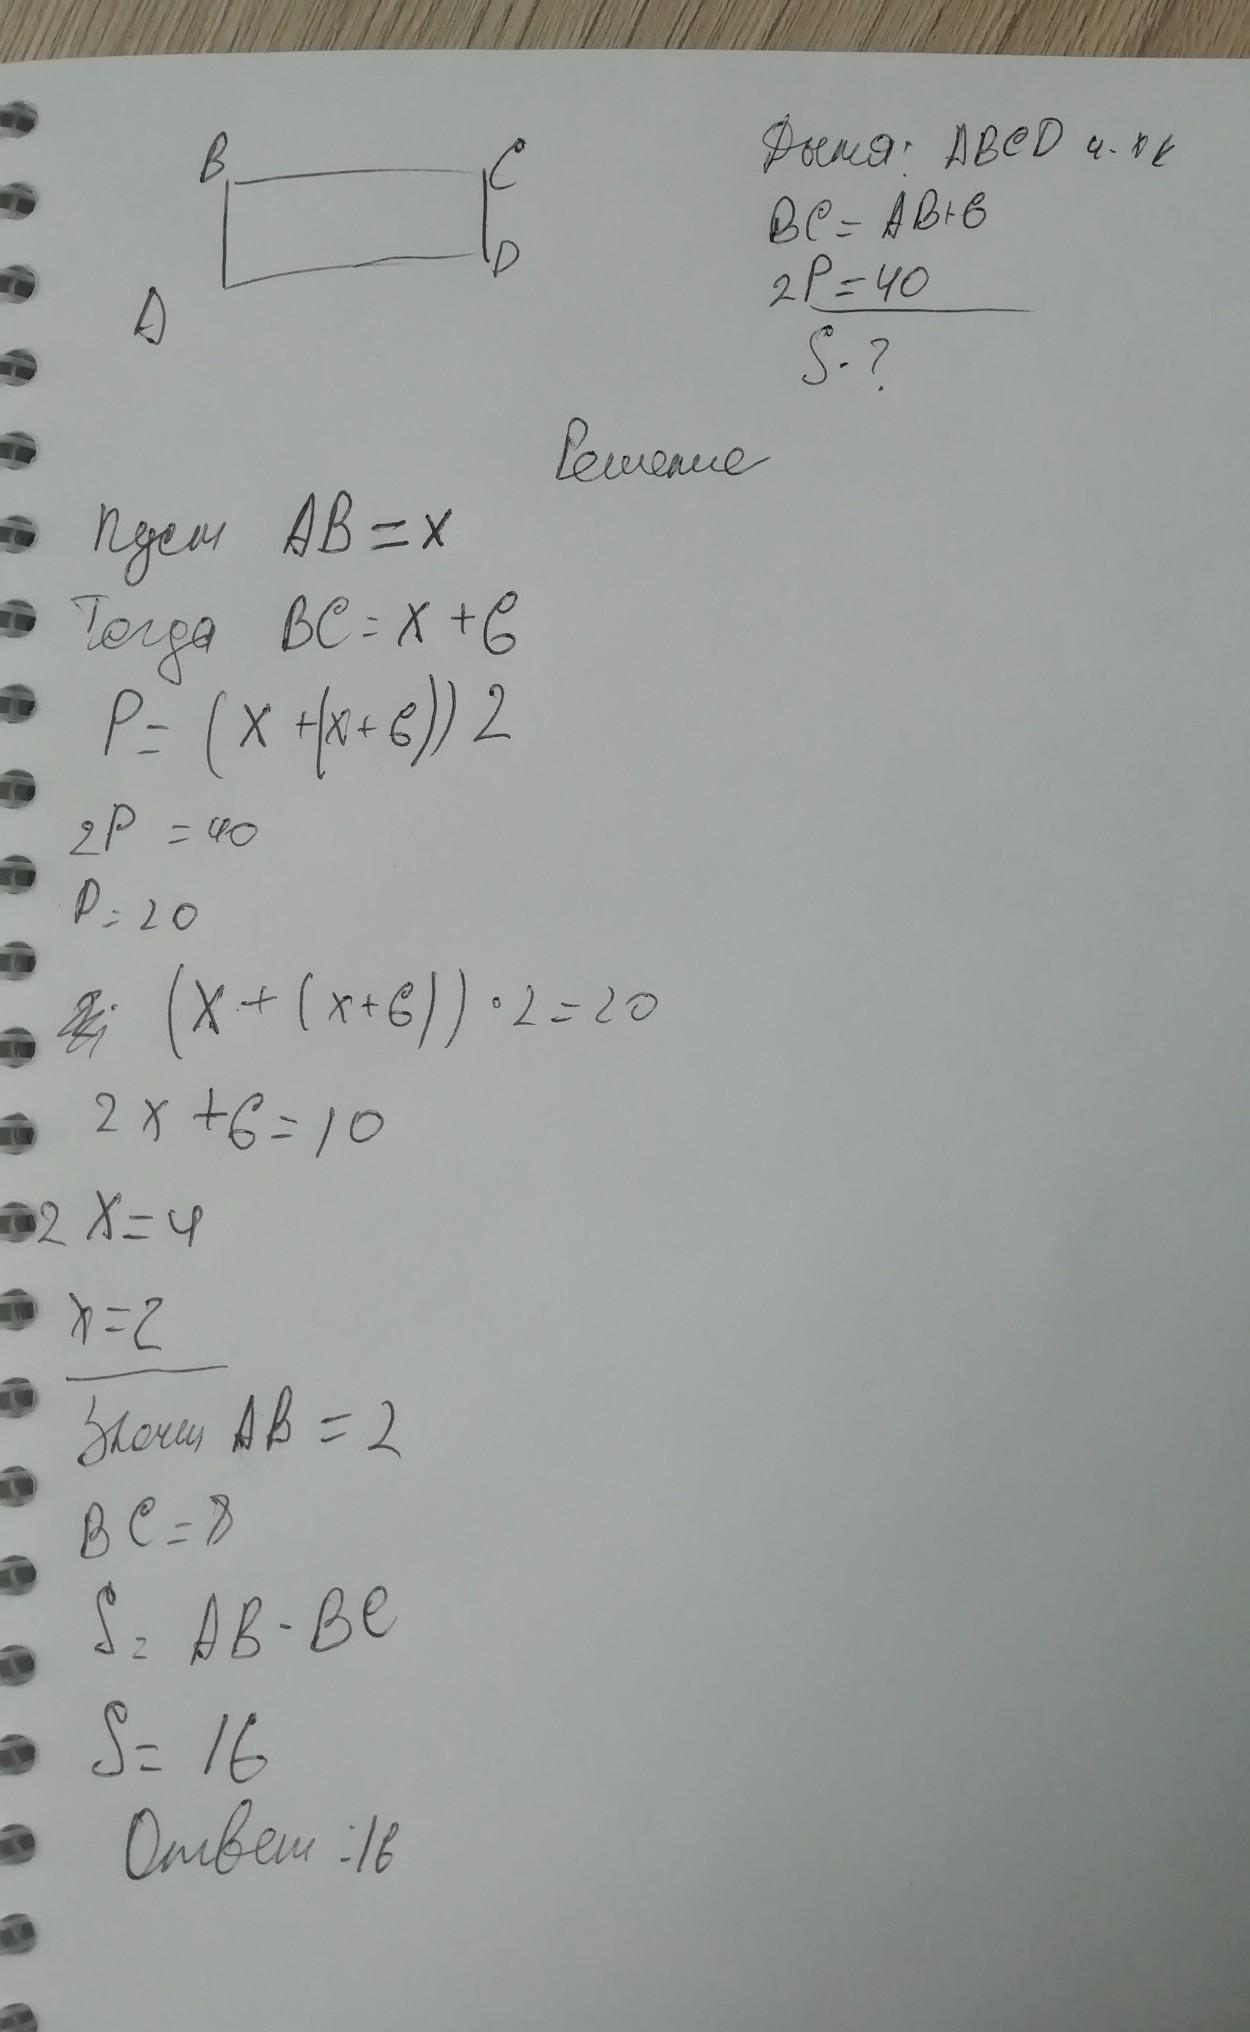 B C
D
A
ABCD
BC = AB+6
2P = 40
S - ?
Решение
Пуст AB = x
Тогда BC = x + 6
P = (x + (x + 6)) 2
2P = 40
P = 20
(x + (x + 6)) · 2 = 20
2x + 6 = 10
2x = 4
x = 2
Значит AB = 2
BC = 8
S = AB · BC
S = 16
Ответ : 16